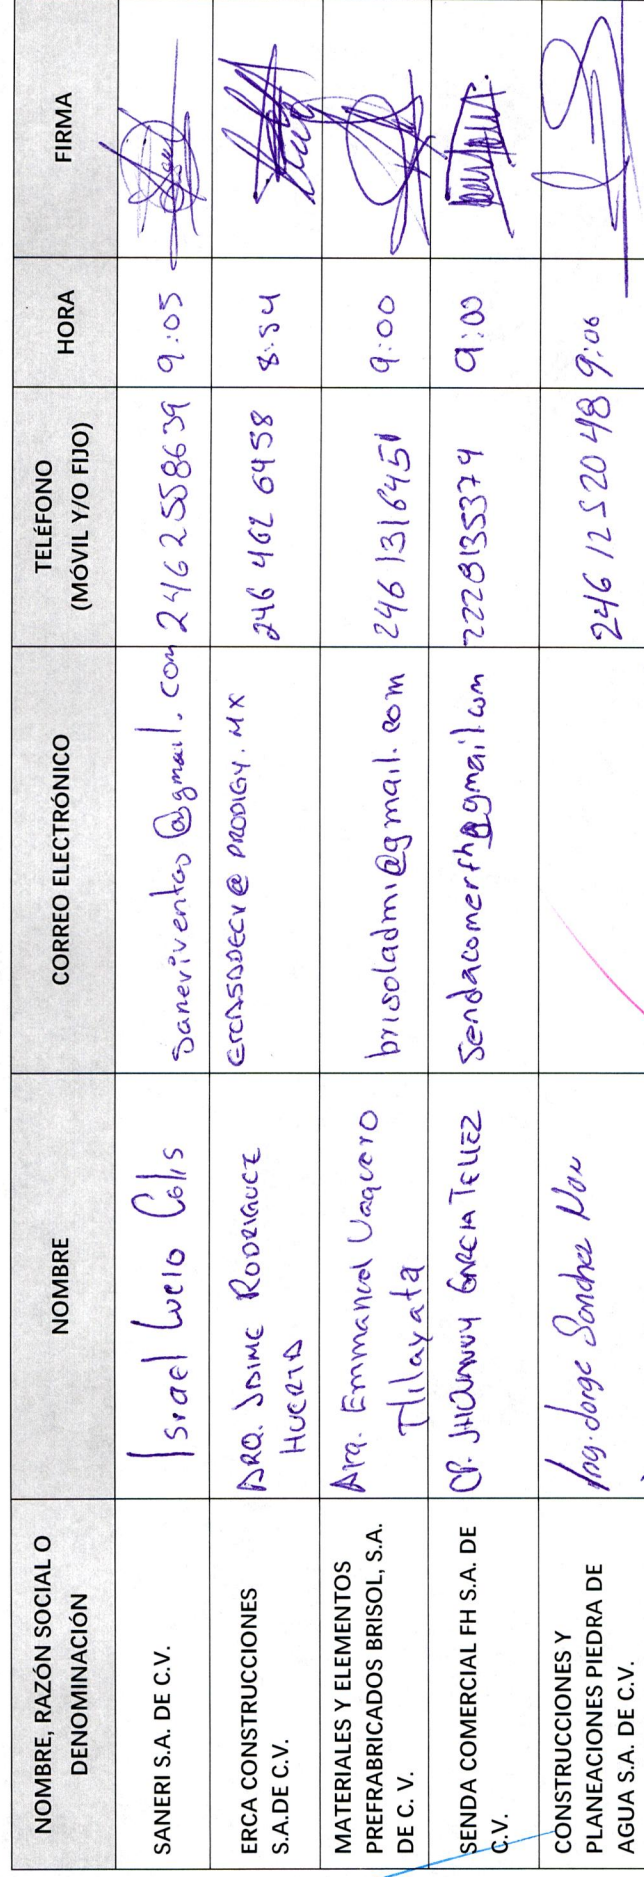 NOMBRE, RAZÓN SOCIAL O
DENOMINACIÓN
NOMBRE
CORREO ELECTRÓNICO
TELÉFONO
(MÓVIL Y/O FIJO)
HORA
FIRMA
SANERI S.A. DE C.V.
Israel Lucio Celis
saneriventas@gmail.com
2462558639
9:05
ERCA CONSTRUCCIONES
S.A.DE C.V.
ARQ. JAIME RODRIGUEZ
HUERTA
ERCASADECV@PRODIGY.MX
246 462 6958
8:54
MATERIALES Y ELEMENTOS
PREFRABRICADOS BRISOL, S.A.
DE C. V.
Arq. Emmanuel Vaquero
Tlilayatzi
brisoladmi@gmail.com
246 1316451
9:00
SENDA COMERCIAL FH S.A. DE
C.V.
CP. JHOVANNY GARCIA TELLEZ
Sendacomerfh@gmail.com
2228135379
9:00
CONSTRUCCIONES Y
PLANEACIONES PIEDRA DE
AGUA S.A. DE C.V.
Ing. Jorge Sanchez
246 12 5 20 48
9:06